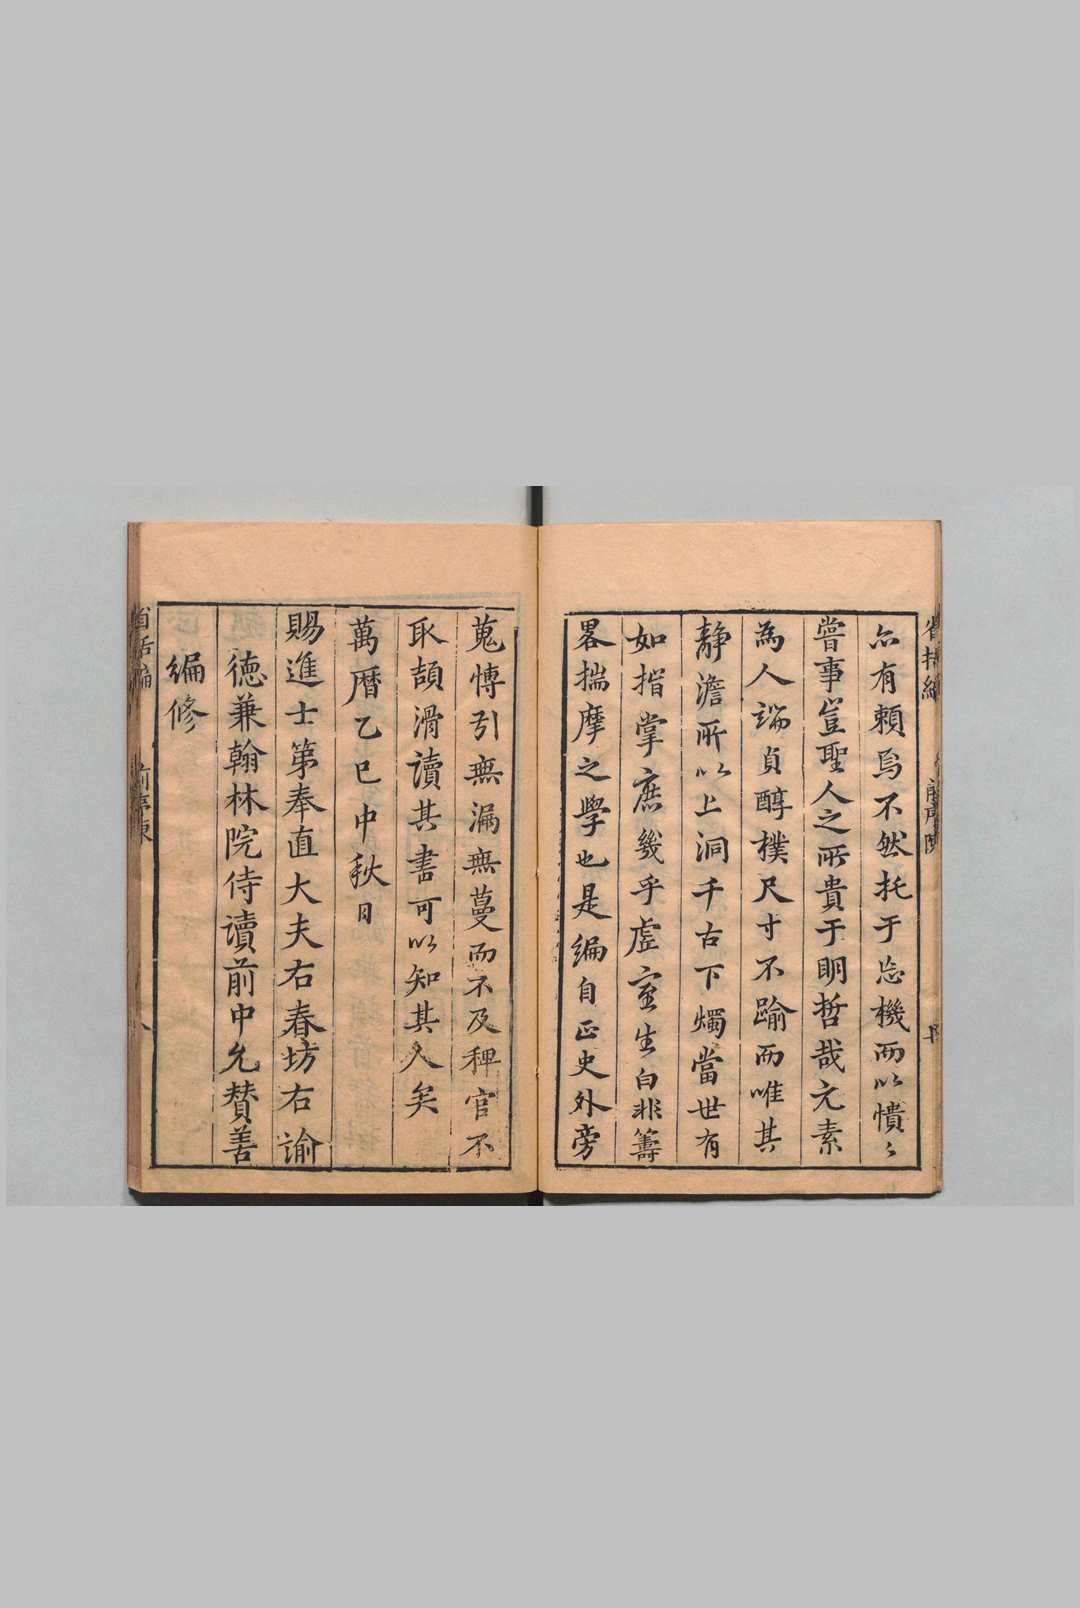 亦有賴焉不然托于忘機而以憒〻
嘗事豈聖人之所貴于明哲哉元素
為人端貞醇樸尺寸不踰而唯其
靜澹所以上洞千古下燭當世有
如指掌庶幾乎虛室生白非籌
畧揣摩之學也是編自正史外旁
蒐博引無漏無蔓而不及稗官不
取頡滑讀其書可以知其人矣
萬曆乙巳中秋日
賜進士第奉直大夫右春坊右諭
德兼翰林院侍讀前中允贊善
編修